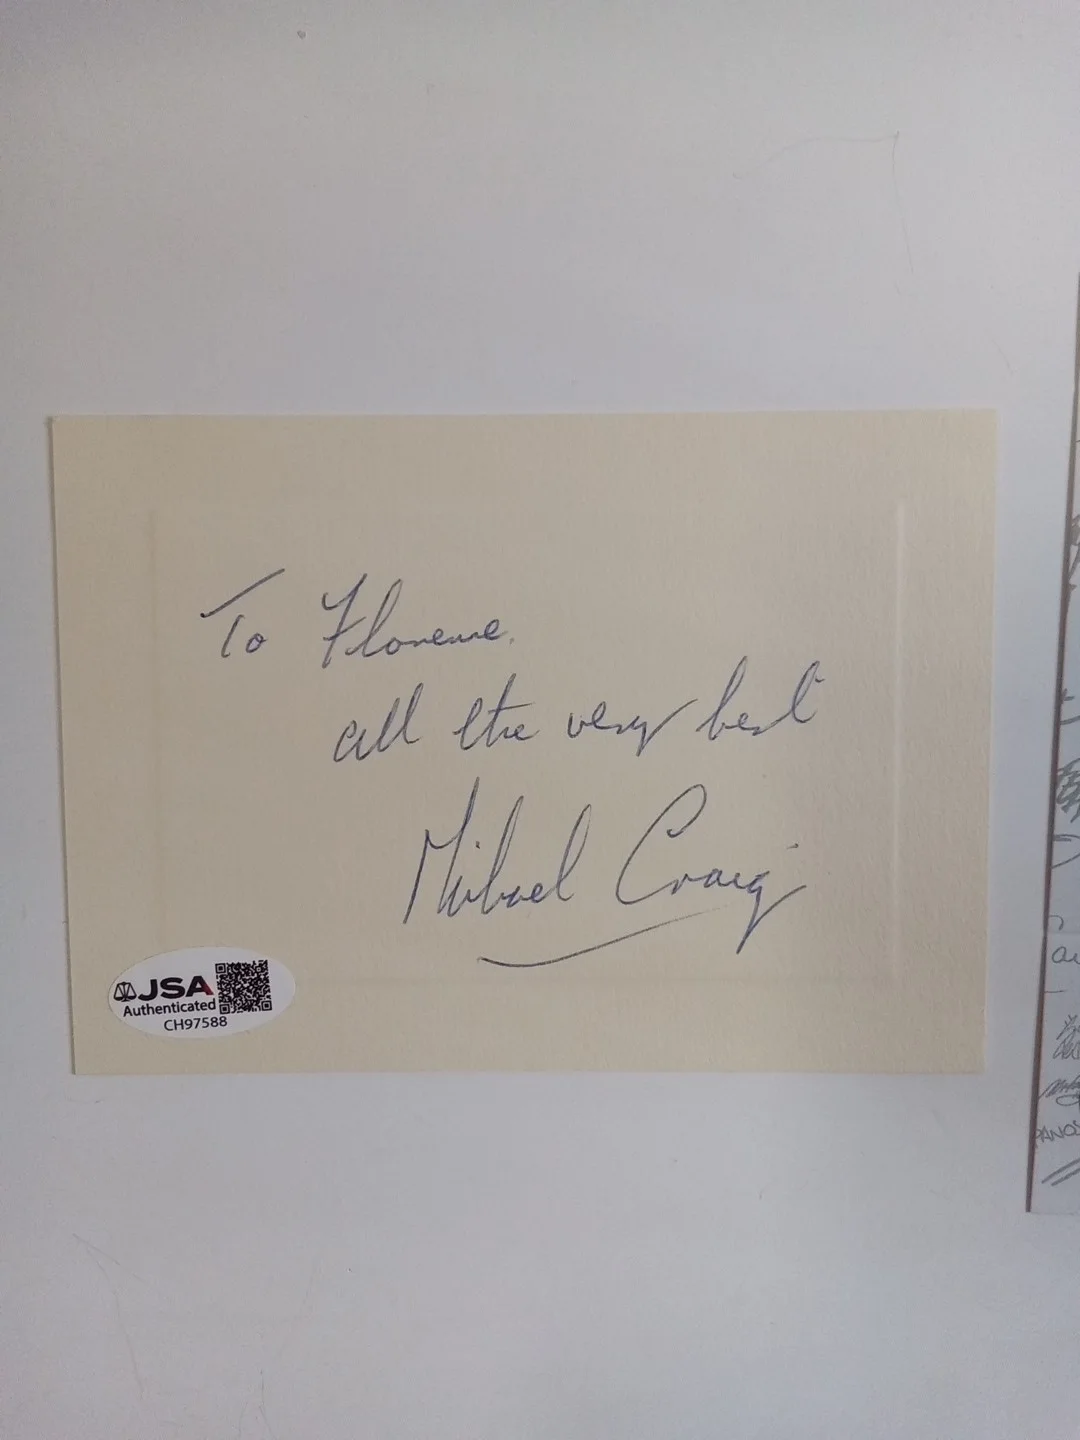 To Florence,
all the very best
Michael Craig
JSA
Authenticated
CH97588
PANOS